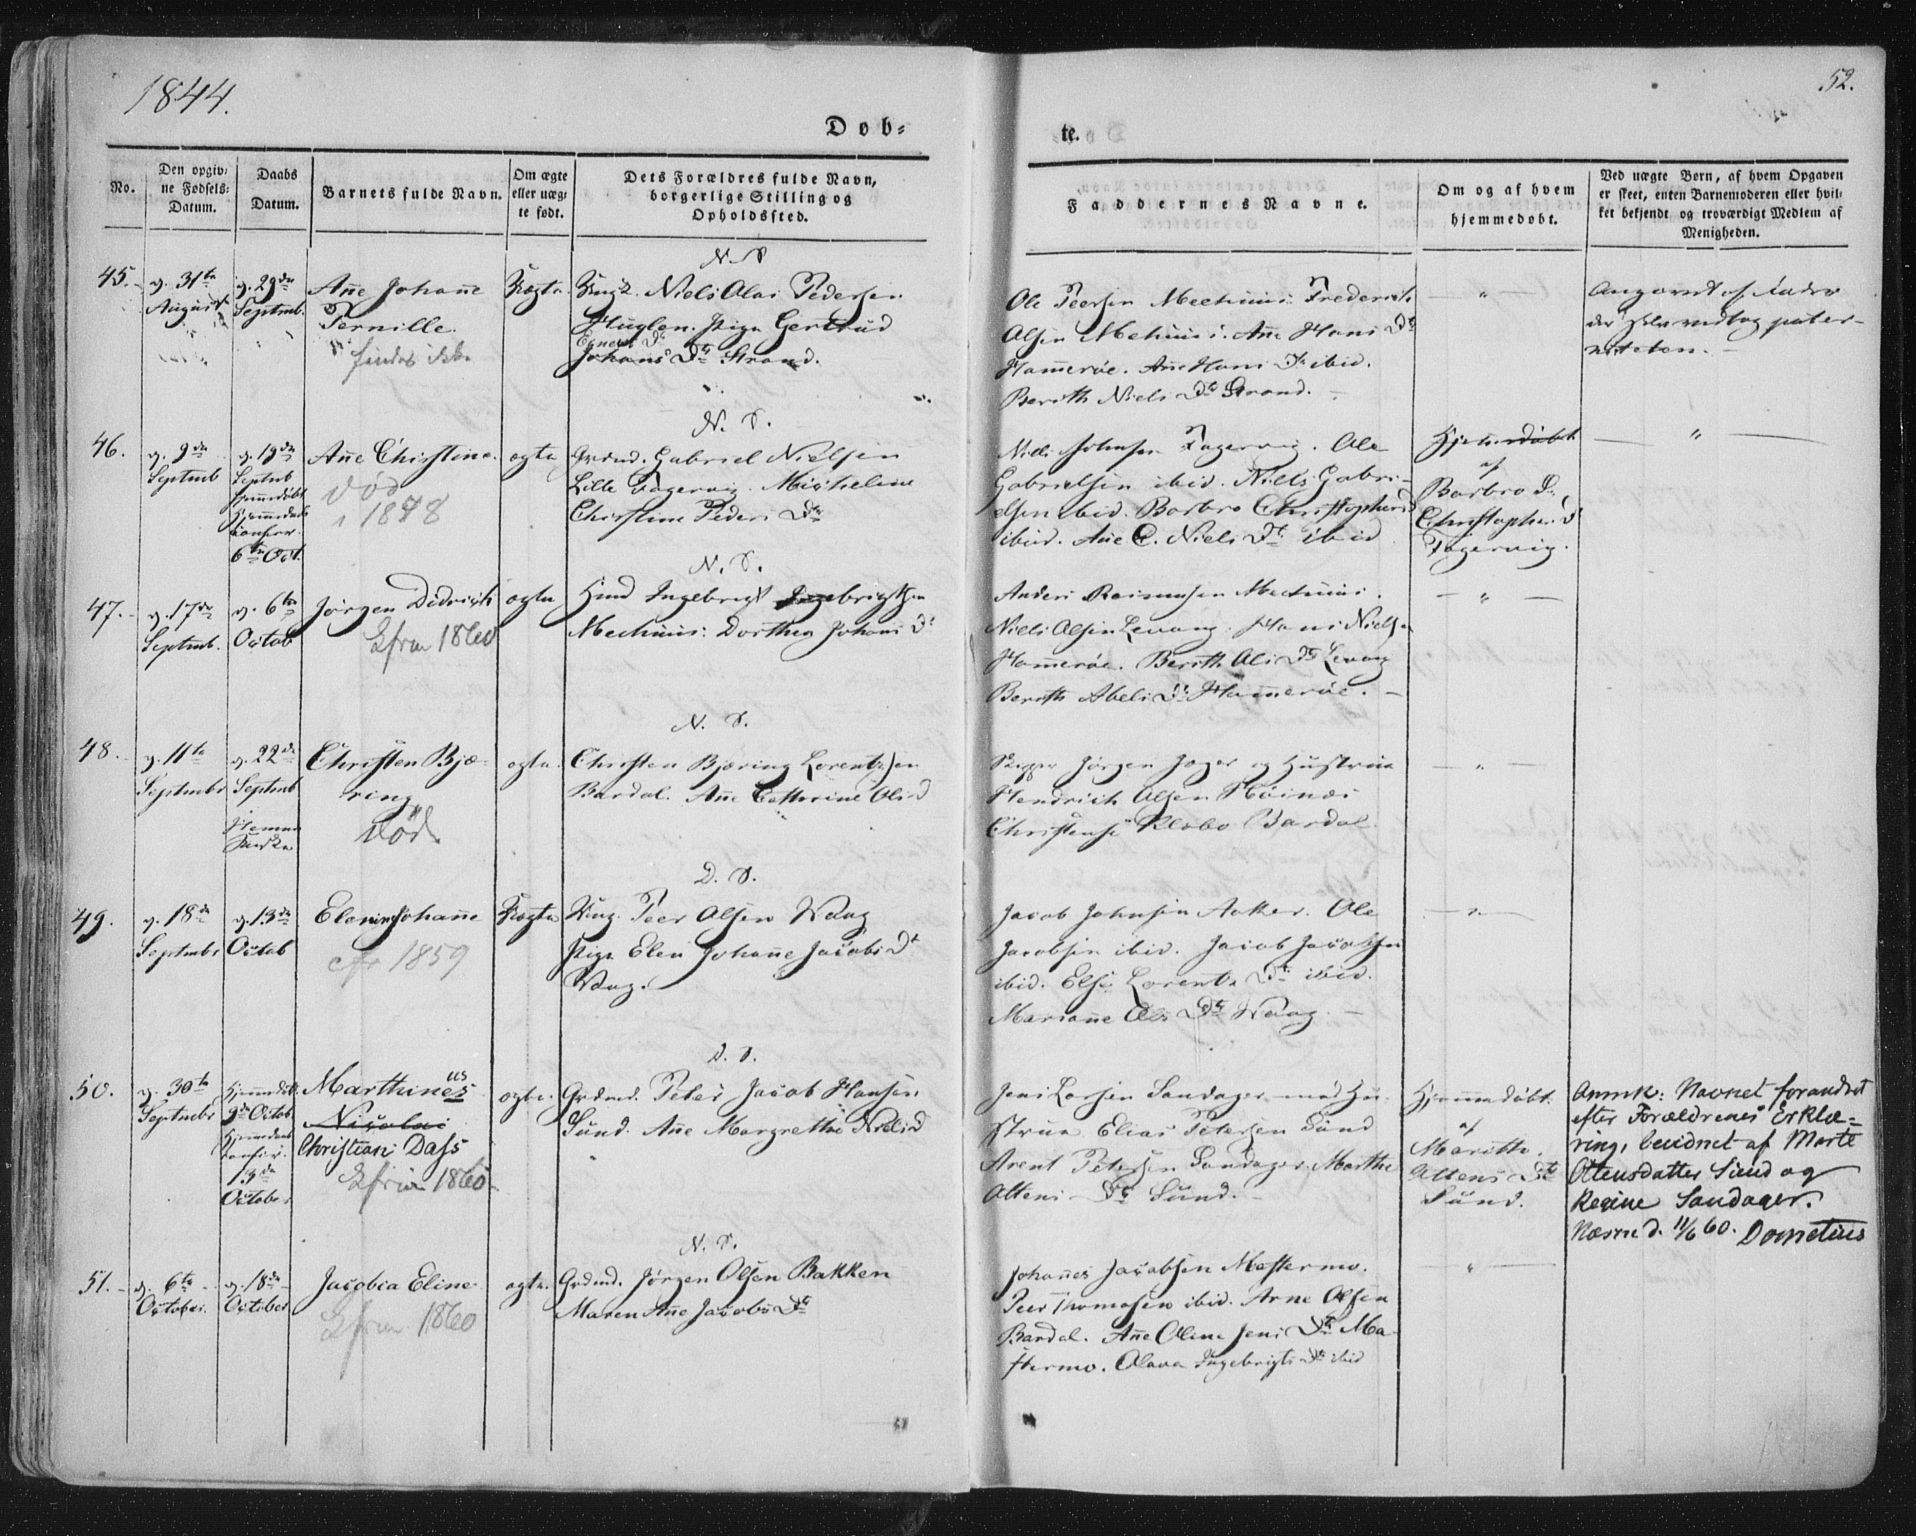 1844.
52.
Døb-
te.
No.
Den opgiv-
ne Fødsels-
Datum.
Daabs
Datum.
Barnets fulde Navn.
Om ægte
eller uæg-
te født.
Dets Forældres fulde Navn,
borgerlige Stilling og
Opholdssted.
Faddernes Navne.
Om og af hvem
hjemmedøbt.
Ved uægte Børn, af hvem Opgaven
er skeet, enten Barnemoderen eller hvil-
ket bekjendt og troværdigt Medlem af
Menigheden.
N. S.
45.
d. 31te
August
d. 29de
Septmb.
Añe Johañe
Pernille.
findes ikke
Uægte
Ung. Niels Olai Pedersen
Huglen. Pige Gertrud
Johans Dt Strand.
Ole Peersen Mechnus. Frederich
Olsen Mechnus. Añe Hans Dt
Hamerøe. Añe Hans Dt ibid.
Berith Niels Dt Strand.
Angivet af Fade-
ren selv vedtog pater-
niteten.
N. S.
46.
d. 9de
Septmb
d. 19de
Septmb
hjemmedøbt
6te Oct.
Añe Christine
død
i 1878
ægte
Grdmd. Gabriel Nielsen
Lille Fagervig. Micheline
Christine Peders Dt
Niels Johnsen Fagervig. Ole
Gabrielsen ibid. Niels Gabri-
elsen ibid. Barbro Christophers D
ibid. Añe C. Niels Dt ibid
Hjemmedøbt
af
Barbro D.
Christophers D
Fagervig.
N. S.
47.
d. 17de
Septmb.
d. 6te
Octob
Jørgen Didrich
Cfrm 1860
ægte
Hmd Ingebrigt Ingebrigtsen
Mechnus. Dorthea Johans Dt
Anders Rasmusen Mechnus.
Niels Olsen Levang. Hans Nielsen
Hamerøe. Berith Ols Dt Levang
Berith Abels Dt Hamerøe.
N. S.
48.
d. 11te
Septmbr
d. 22de
Septmb
Christen Bjæ-
ring
død
ægte
Christen Bjæring Lorentzen
Bardal. Añe Cathrine Ols D
Jørgen Jager og Hustrue
Hendrich Olsen Høinæs
Christense Klæbo Bardal
D. S.
49.
d. 18de
Septmbr
d. 13de
Octob
Elen Johañe
cfr 1859
Uægte
Ung. Peer Olsen Waag
Pige Elen Johañe Jacobs Dt
Waag.
Jacob Johnsen Aaker. Ole
Jacobsen ibid. Jacob Jacobsen
ibid. Else Lorents Dt ibid.
Mariañe Ols Dt Waag.
D. S.
50.
d. 30te
Septmbr
hjemmedøbt
9de Octob
13de
October
Marthines
us
Nicolai
Christian Dass
Cfrm 1860
ægte.
Grdmd. Peter Jacob Hansen
Sund. Añe Margrethe Niels D
Jens Larsen Sandager med Hu-
strue Elias Petersen Sund
Arent Petersen Sandager. Marthe
Ottens Dt Sund.
Hjemmedøbt
af
Marithe
Ottens Dt
Sund.
Anmk: Navnet forandret
efter Forældrenes Erklæ-
ring, bevidnet af Marte
Ottensdatter Sund og
Regine Sandager.
Næsne d. 11/6 60. Dometius
N. S.
51.
d. 6te
October.
d. 18de
October
Jacobia Eline
Cfrm 1860
ægte.
Grdmd. Jørgen Olsen Bakken
Maren Añe Jacobs Dt
Johannes Jacobsen Mastermo.
Peer Thomasen ibid. Arne Olsen
Bardal. Añe Oline Jens Dt Ma-
stermo. Olava Ingebrigts Dt ibid